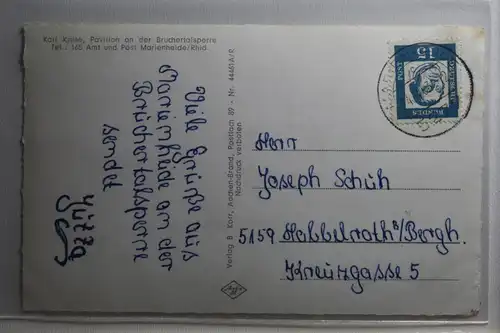 Karl Kaiser, Pavillon an der Bruchertalsperre
Tel.: 145 Amt und Post Marienheide/Rhld.
Viele Grüße aus
Marienheide an der
Brüchertalsperre
sendet
Verlag B. Karr, Aachen-Brand, Postfach 89 - Nr. 44461 A/R
Nachdruck verboten
15
DEUTSCHE
BUNDES
POST
Herr
Joseph Schüh
5159 Habbelroth b/Bergh.
Kreuzgasse 5